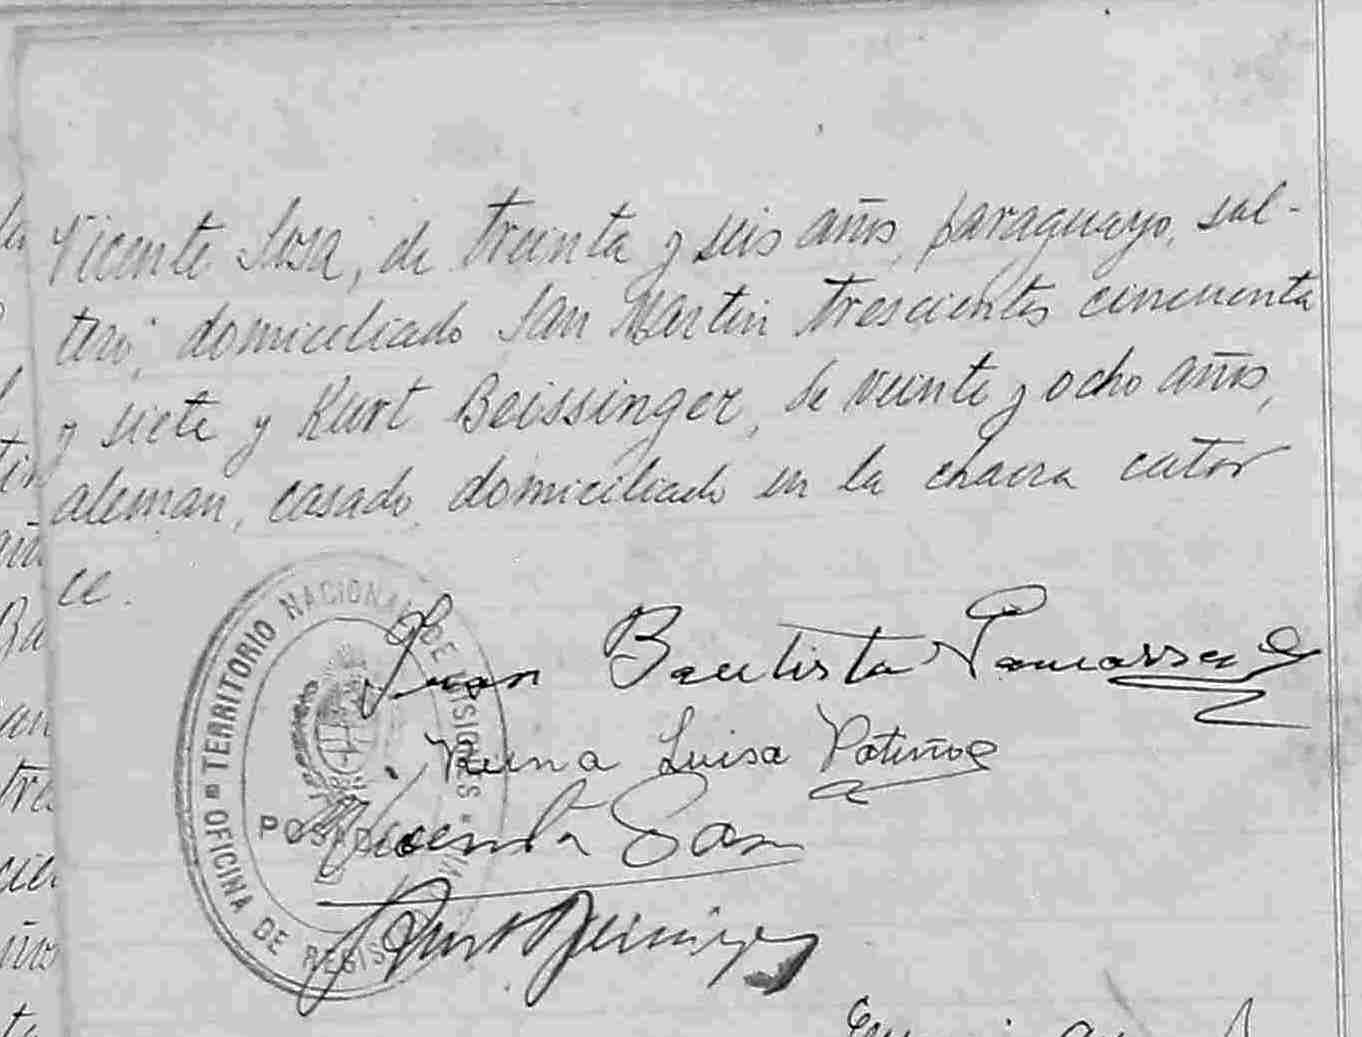 Vicente Sosa, de treinta y seis años, paraguayo, sol-
tero, domiciliado San Martin trescientos cincuenta
y siete y Kurt Beissinger, de veinte y ocho años,
aleman, casado, domiciliado en la chacra cator
ce.
OFICINA DE REGIS
TERRITORIO NACIONAL DE MISIONES
POS
Juan Bautista
Reina Luisa Patiño
Vicente Sosa
Kurt Beissinger